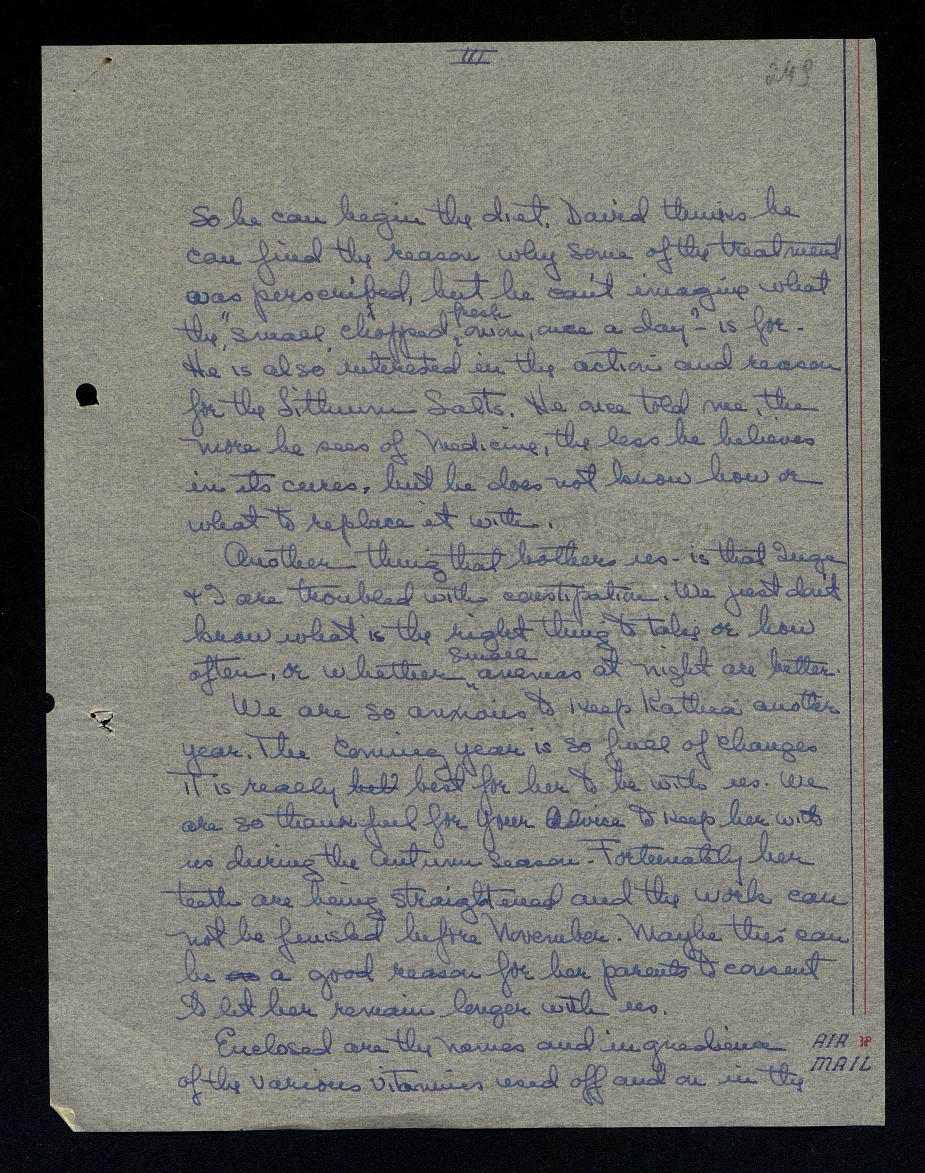 III
249
So he can begin the diet. David thinks he
can find the reason why some of the treatment
was perscribed, but he can't imagine what
fresh
the "small chopped onion, once a day" - is for -
He is also interested in the action and reason
for the Lithium Salts. He once told me, the
more he sees of Medicine, the less he believes
in its cures, but he does not know how or
what to replace it with.
Another thing that bothers us - is that Inga
+ I are troubled with constipation. We just don't
know what is the right thing to take or how
small
often, or whether enemas at night are better.
We are so anxious to keep Kathia another
year. The coming year is so full of changes
it is really best for her to be with us. We
are so thankful for your advice to keep her with
us during the Autumn Season - Fortunately her
teeth are being straightened and the work can
not be finished before November. Maybe this can
be a good reason for her parents to consent
to let her remain longer with us.
Enclosed are the names and ingredience
of the various vitamins used off and on in the
AIR
MAIL